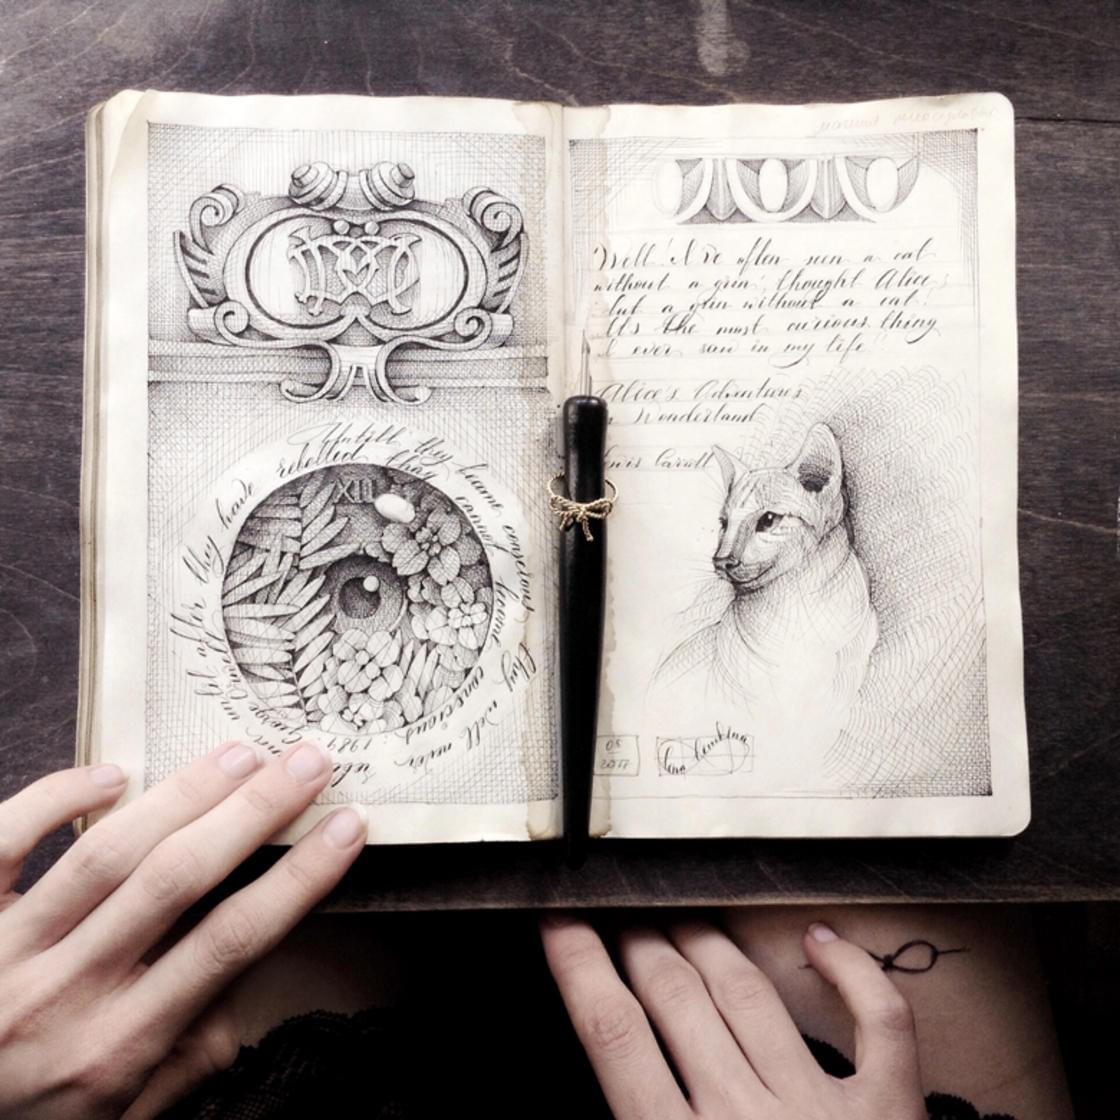 XII
Untill they become conscious they will never rebel
until after they have rebelled they cannot become conscious
George Orwell
1984
Well! I've often seen a cat
without a grin; thought Alice;
but a grin without a cat!
It's the most curious thing
I ever saw in my life!"
Alice's Adventures
in Wonderland
Lewis Carroll
05
2017